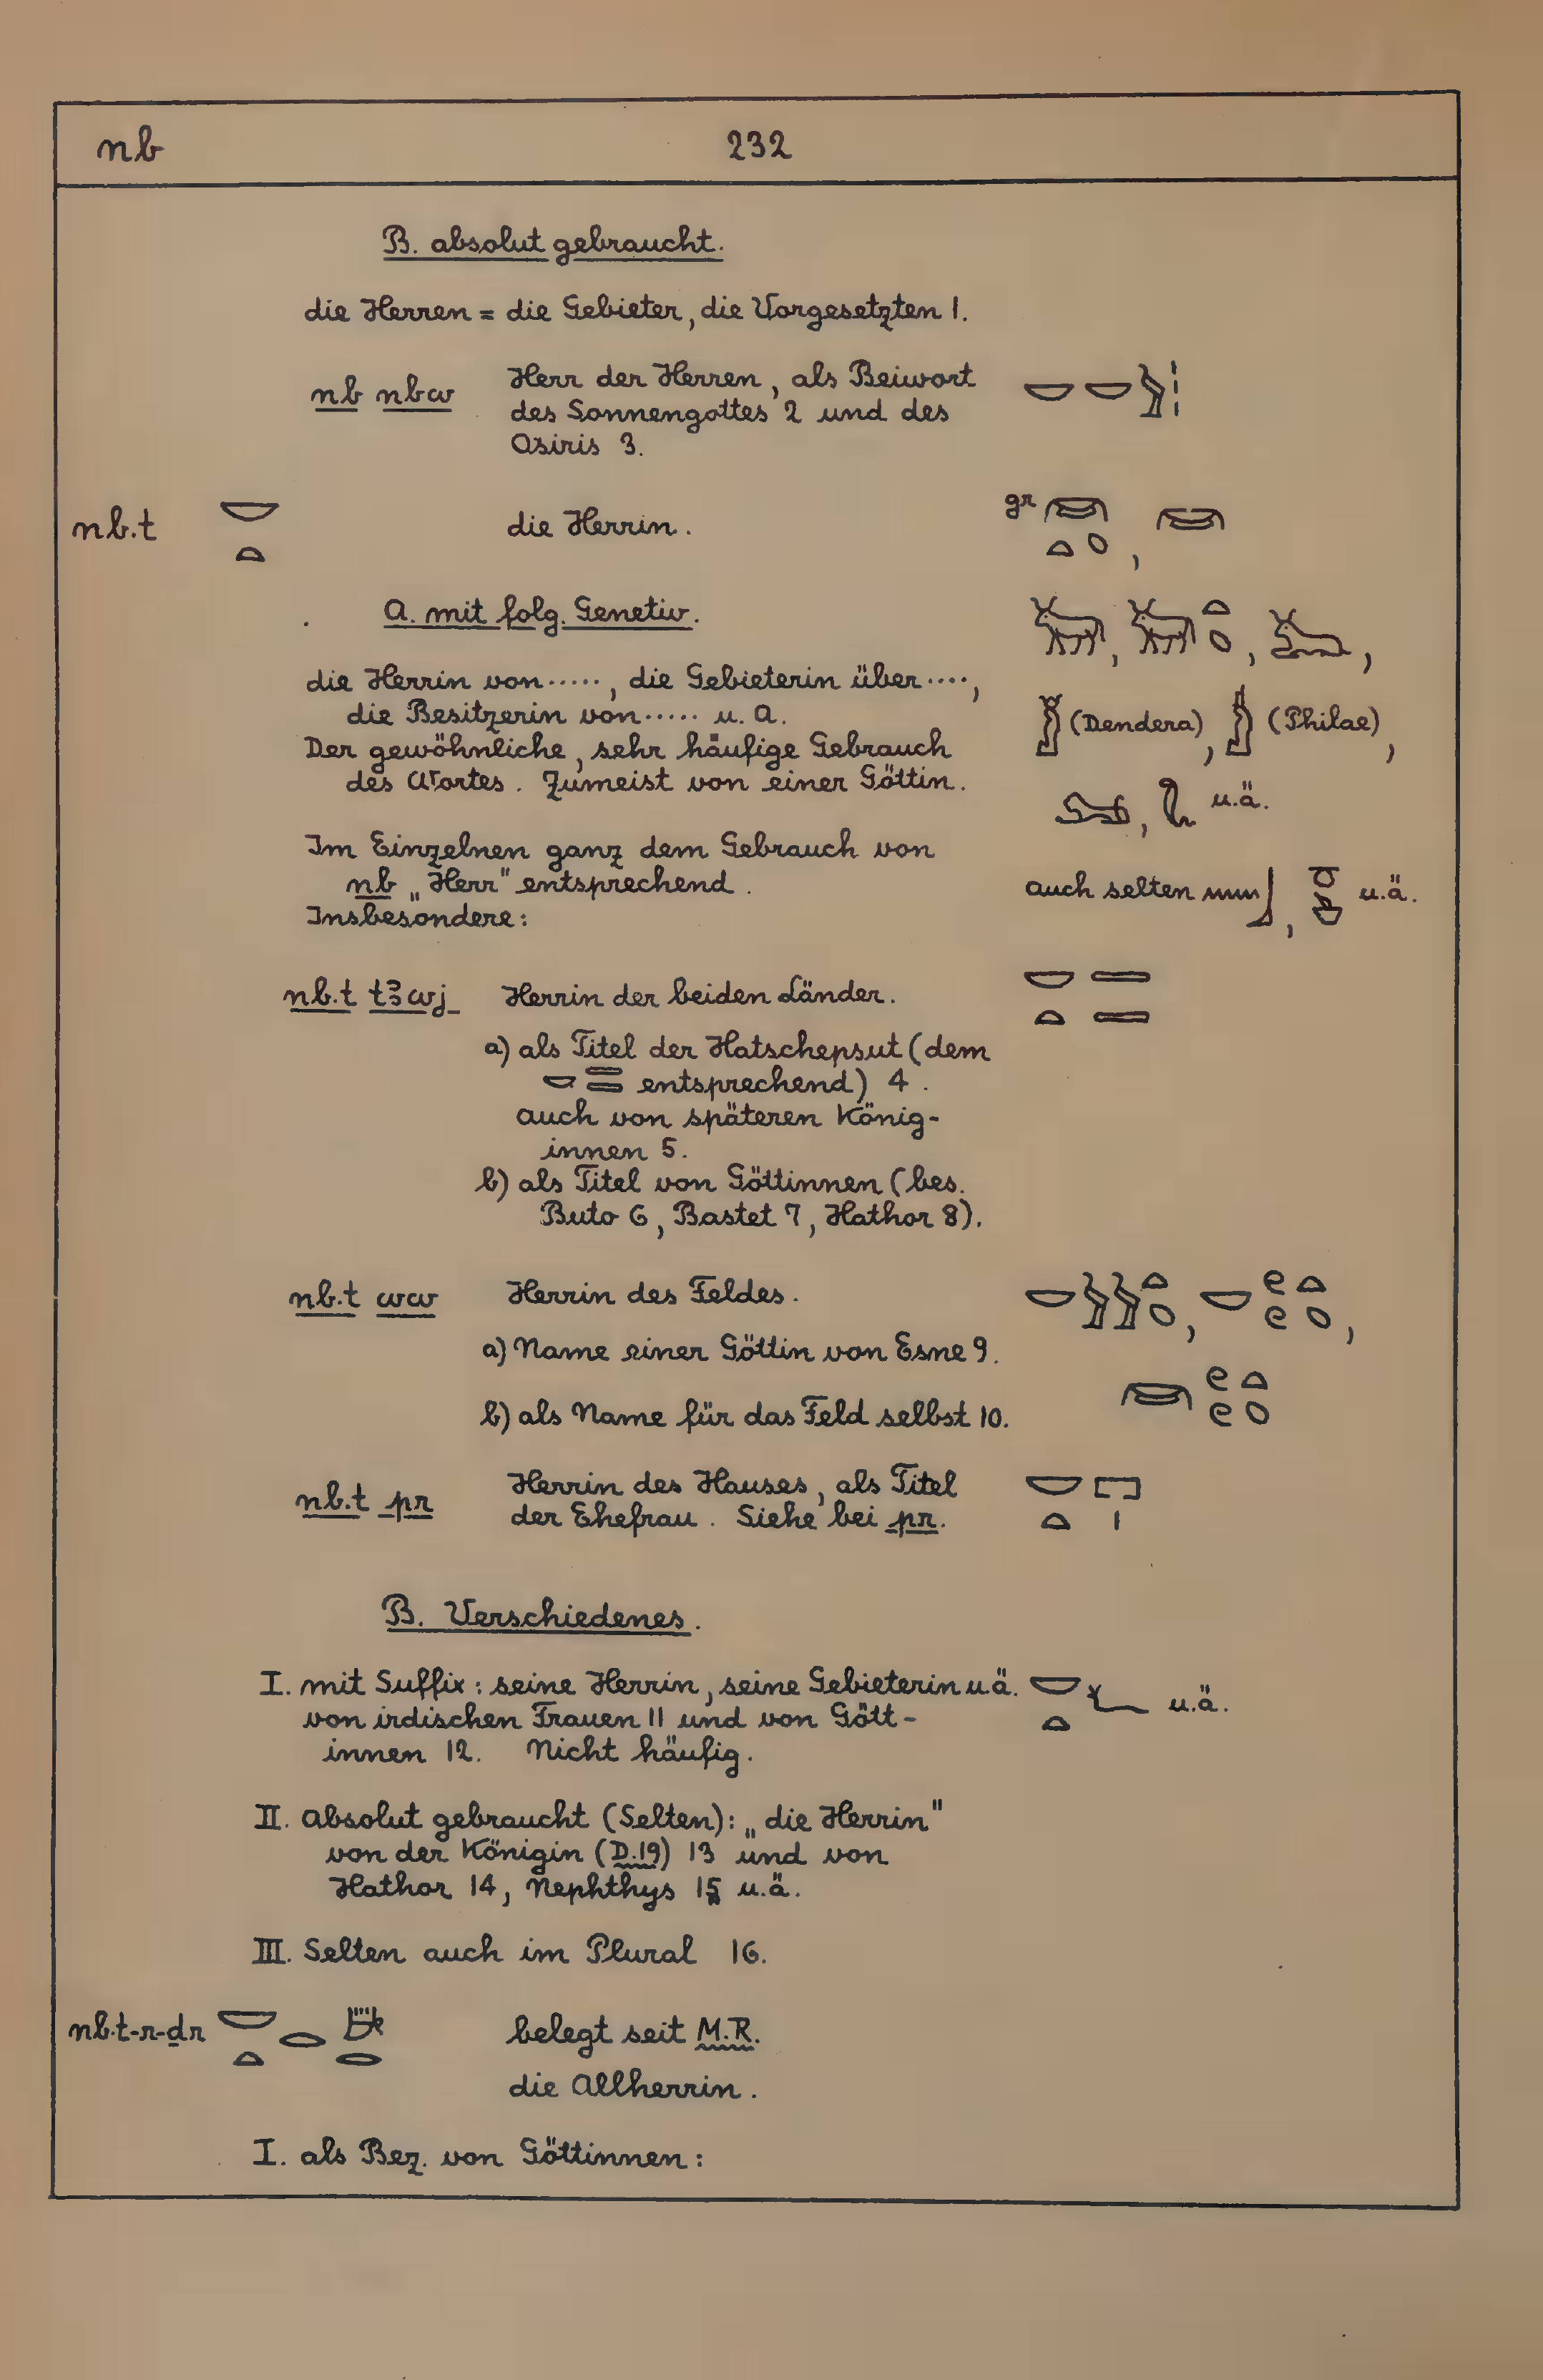 nb 232
B. absolut gebraucht.
die Herren = die Gebieter, die Vorgesetzten 1.
nb nbw Herr der Herren, als Beiwort
des Sonnengottes 2 und des
Osiris 3.
nb.t 𓎟𓏏 die Herrin. gr
A. mit folg. Genetiv.
die Herrin von....., die Gebieterin über....,
die Besitzerin von..... u. A.
(Dendera), (Philae),
Der gewöhnliche, sehr häufige Gebrauch
des Wortes. Zumeist von einer Göttin.
u.ä.
Im Einzelnen ganz dem Gebrauch von
nb „Herr" entsprechend.
auch selten 𓈖𓃀, u.ä.
Insbesondere:
nb.t tꜣwj Herrin der beiden Länder. 𓎟𓏏𓇿𓇿
a) als Titel der Hatschepsut (dem
𓎟𓇿𓇿 entsprechend) 4.
auch von späteren König-
innen 5.
b) als Titel von Göttinnen (bes.
Buto 6, Bastet 7, Hathor 8).
nb.t ww Herrin des Feldes.
a) Name einer Göttin von Esne 9.
b) als Name für das Feld selbst 10.
nb.t pr Herrin des Hauses, als Titel 𓎟𓏏𓉐𓏤
der Ehefrau. Siehe bei pr.
B. Verschiedenes.
I. mit Suffix: seine Herrin, seine Gebieterin u.ä. 𓎟𓏏𓆑 u.ä.
von irdischen Frauen 11 und von Gött-
innen 12. Nicht häufig.
II. Absolut gebraucht (Selten): „die Herrin"
von der Königin (D.19) 13 und von
Hathor 14, Nephthys 15 u.ä.
III. Selten auch im Plural 16.
nb.t-r-ḏr belegt seit M.R.
die Allherrin.
I. als Bez. von Göttinnen: